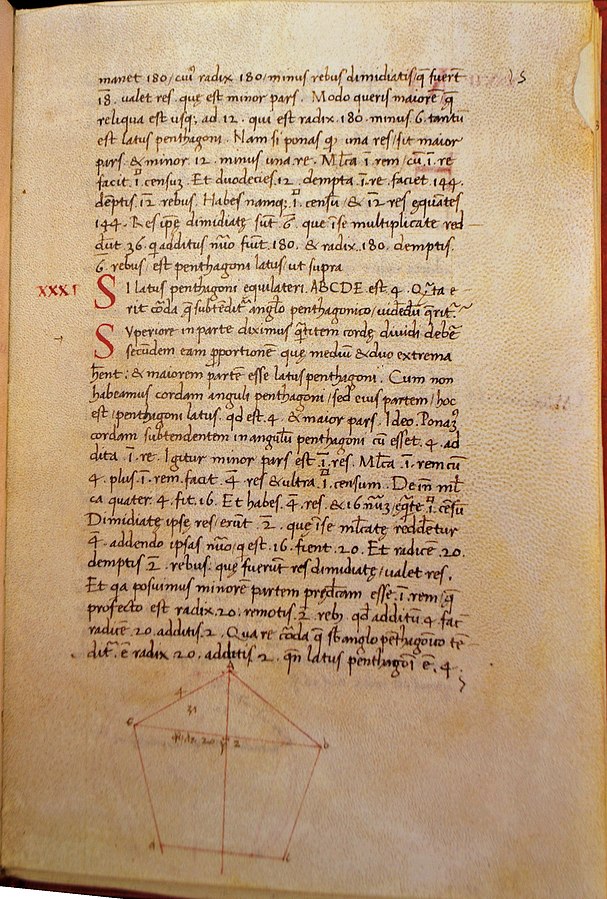 manet 180/ cuiꝰ radix 180/ minus rebus dimidiatis/ q̃ fuerũt
18. valet res. que est minor pars. Modo queris maiorẽ/ q̃
15
reliqua est usq; ad. 12. qui est radix. 180. minus. 6. tantũ
est latus penthagoni. Nam si ponas qꝫ una res/ sit maior
pars. & minor. 12. minus una re. Ml̃ca .1̃. rem / cũ .1̃. re
facit .1̃. censuꝫ. Et duodecies .12. dempta .1̃. re. faciet .144.
dẽptis .12. rebus. Habes namqꝫ .1̃. censũ / & .12. res equates
144. Res ipse dimidiatę sunt. 6. que ĩse multiplicate red
dũt. 36. q̃ additus nũo fiũt. 180. & radix .180. demptis.
6. rebus/ est penthagoni latus/ ut supra
XXXI SI latus penthagoni equilateri. ABCDE. est .4. Qñta e
rit cõda q̃ subtẽdit anglo penthagonico/ videdũ q̃rit.
SVperiore in parte diximus q̃titem cordę, dividi debẽ
secũdem eam p̃portionẽ quę mediũ & duo extrema
hẽnt: & maiorem partẽ esse latus penthagoni. Cum non
habeamus cordam anguli penthagoni/ sed eius partem/ hoc
est/ penthagoni latus. qd est. 4. & maior pars. Ideo. Ponaꝫ
cordam subtendentem in angulũ penthagoni cũ esset. 4. ad
dita .1̃. re. Igitur minor pars est .1̃. res. Ml̃ca .1̃. rem cũ
4. plus .1̃. rem. facit. 4̃. res & ultra .1̃. censum. Dein ml̃
ca quater. 4. fit. 16. Et habes. 4̃. res. & 16. nũꝫ / eq̃te .1̃. cẽsũ
Dimidiatę ipsę res/ erũt. 2̃. quę ĩse ml̃catę reddẽtur
4. addendo ipsas nũo/ q̃ est. 16. fient. 20. Et radice. 20.
demptis. 2̃. rebus. quę fuerũt res dimidiatę/ valet res.
Et qa posuimus minorẽ partem prędc̃am esse .1̃. rem/ q̃
profecto est radix. 20. remotis. 2̃. rebꝫ. qd additũ. 4. fac̃
radicẽ. 20. additis. 2. Quare cõda q̃ sb̃ anglo pẽthagõico tẽ
dit̃. ẽ radix 20. additis 2. qñ latus penthagoĩ ẽ. 4.
a
4
31
e
2
b
d
c